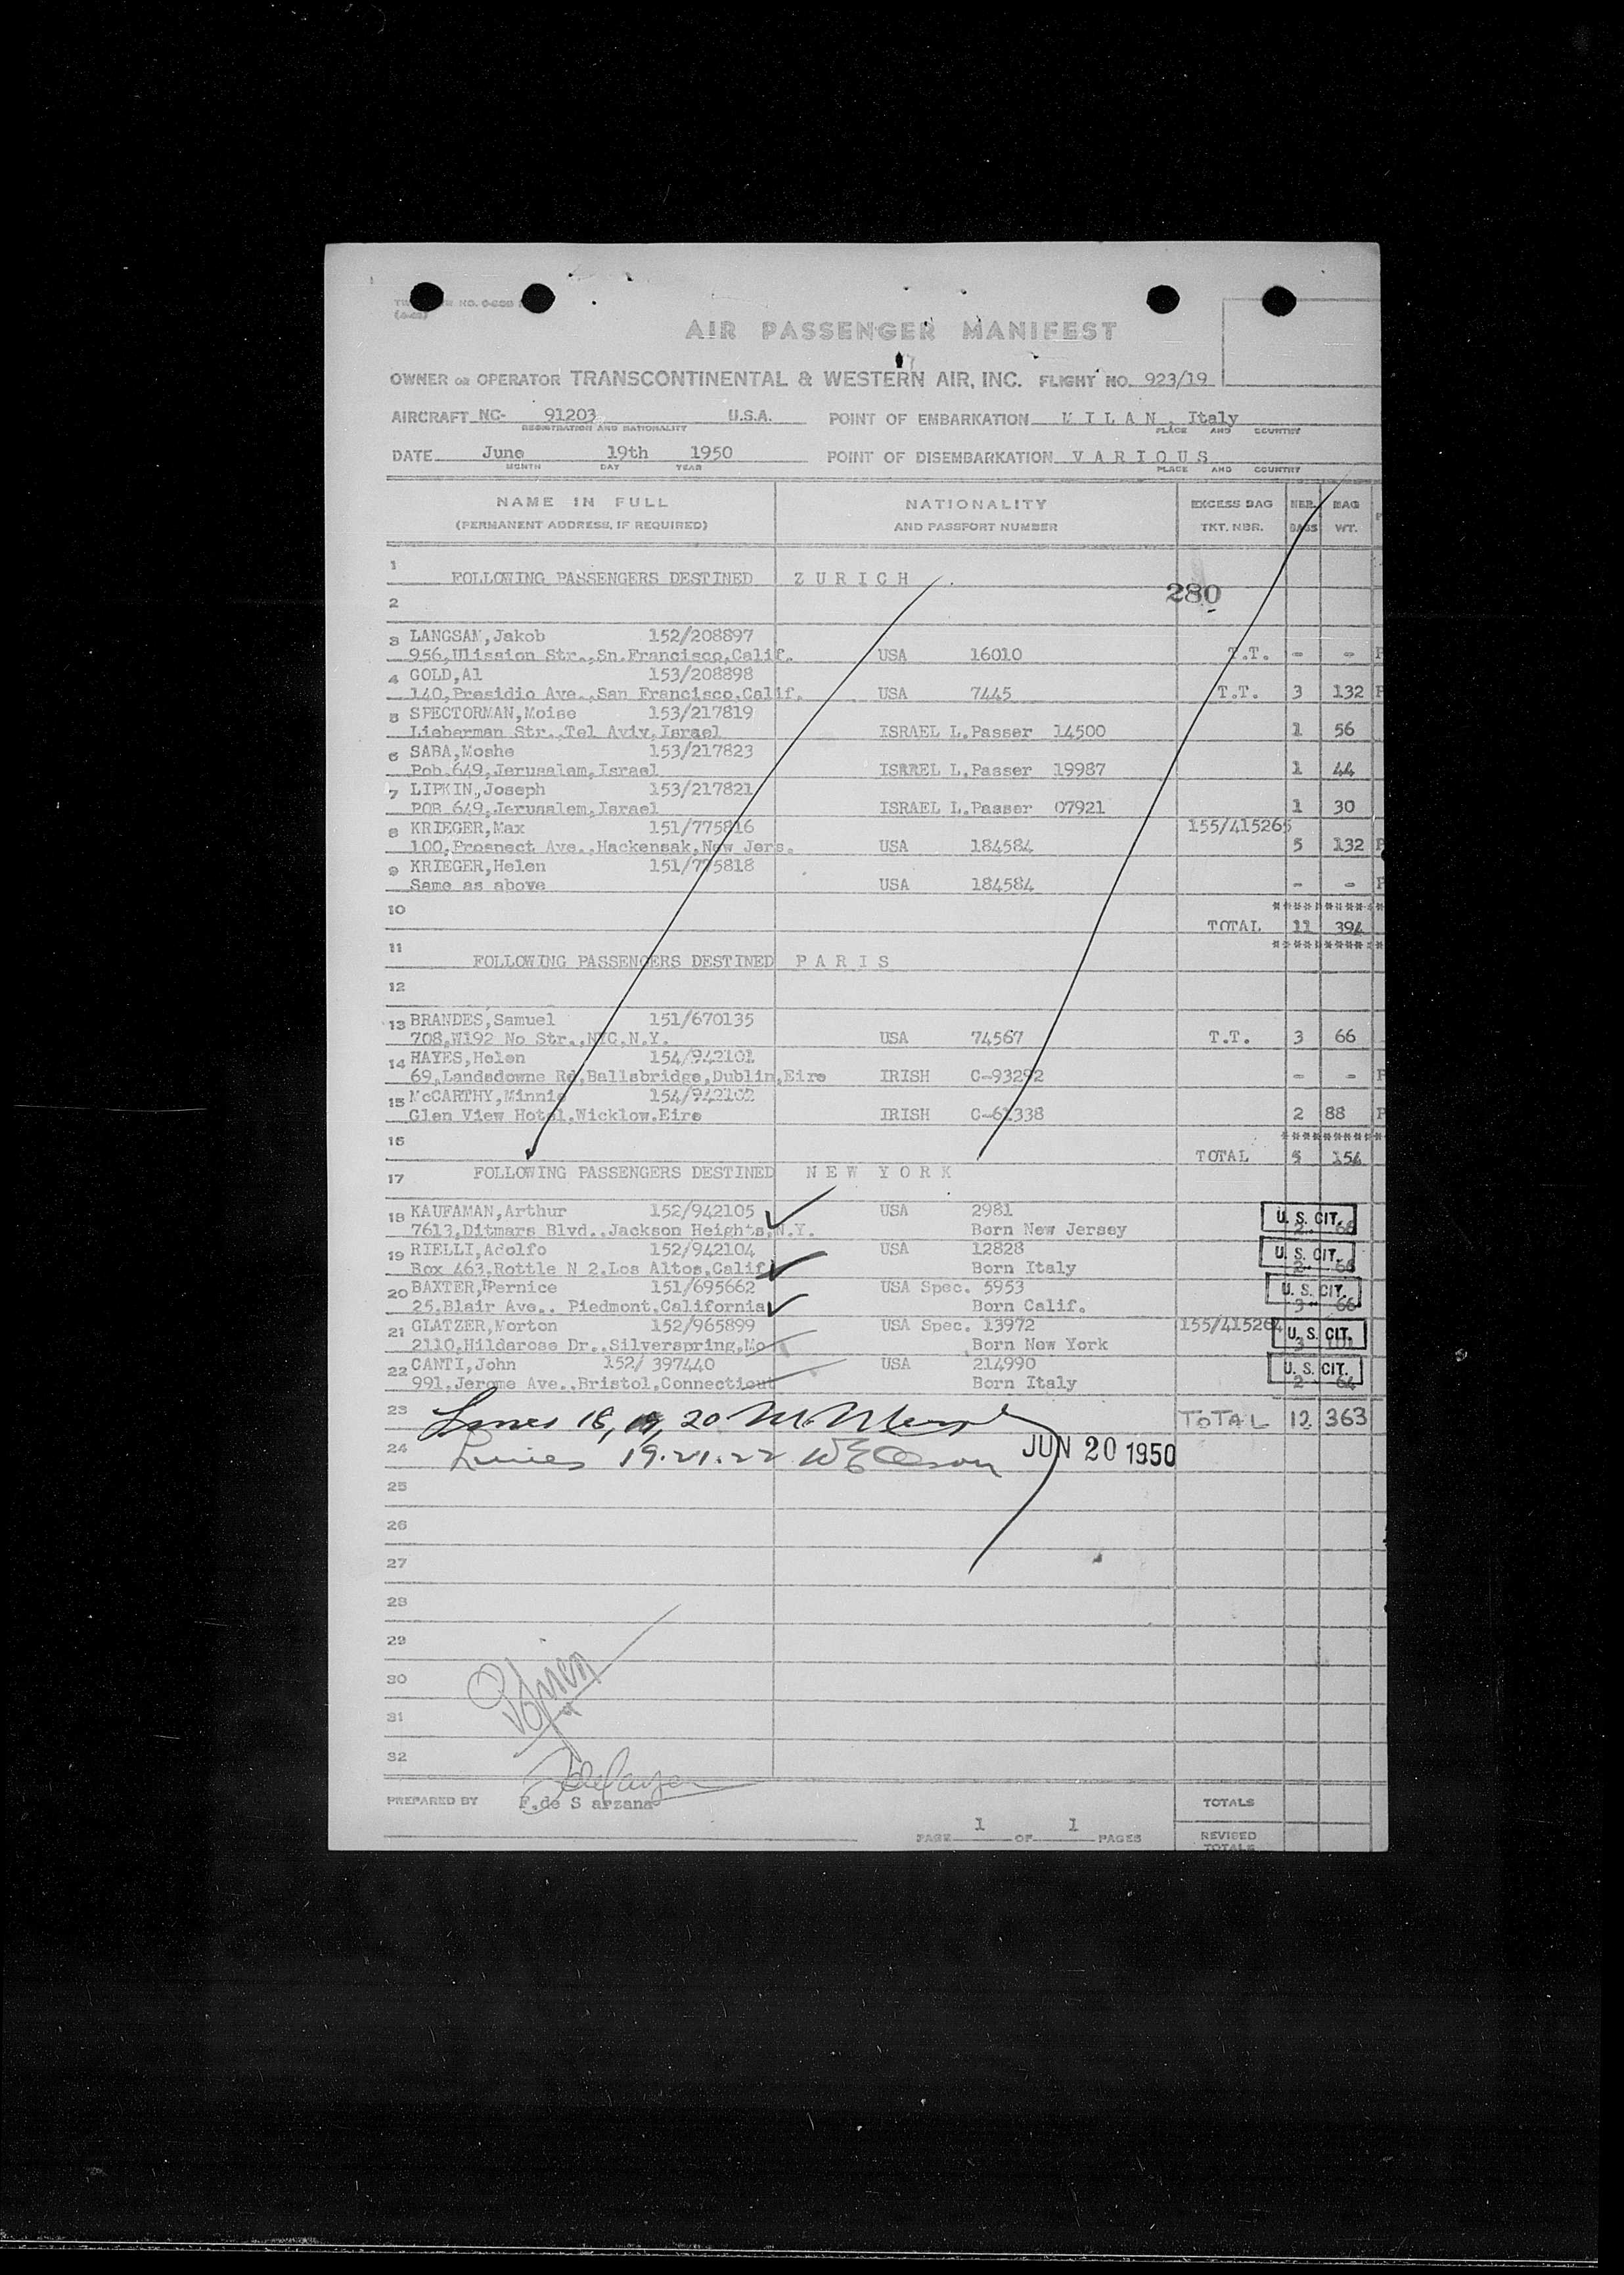 (4-48)
AIR PASSENGER MANIFEST
OWNER OR OPERATOR TRANSCONTINENTAL & WESTERN AIR, INC. FLIGHT NO. 923/19
AIRCRAFT NC- 91203 U.S.A. POINT OF EMBARKATION M I L A N , Italy
REGISTRATION AND NATIONALITY PLACE AND COUNTRY
DATE June 19th 1950 POINT OF DISEMBARKATION V A R I O U S
MONTH DAY YEAR PLACE AND COUNTRY
NAME IN FULL NATIONALITY EXCESS BAG NBR. BAG
(PERMANENT ADDRESS, IF REQUIRED) AND PASSPORT NUMBER TKT. NBR. BAGS WT.
1 FOLLOWING PASSENGERS DESTINED Z U R I C H
280
2
3 LANGSAM,Jakob 152/208897
956,Ulission Str.,Sn.Francisco,Calif. USA 16010 T.T. - - P
4 GOLD,Al 153/208898
140,Presidio Ave.,San Francisco,Calif. USA 7445 T.T. 3 132 P
5 SPECTORMAN,Moise 153/217819
Lieberman Str.,Tel Aviv,Israel ISRAEL L.Passer 14500 1 56
6 SABA,Moshe 153/217823
Pob.649,Jerusalem,Israel ISRREL L.Passer 19987 1 44
7 LIPKIN,Joseph 153/217821
POB 649,Jerusalem,Israel ISRAEL L.Passer 07921 1 30
8 KRIEGER,Max 151/775816 155/415265
100,Prospect Ave.,Hackensak,New Jers. USA 184584 5 132 P
9 KRIEGER,Helen 151/775818
Same as above USA 184584 - - P
10 **********
TOTAL 11 394
11 **********
FOLLOWING PASSENGERS DESTINED P A R I S
12
13 BRANDES,Samuel 151/670135
708,W192 No Str.,NYC,N.Y. USA 74567 T.T. 3 66
14 HAYES,Helen 154/942101
69,Landsdowne Rd,Ballsbridge,Dublin,Eire IRISH C-93292 - - P
15 McCARTHY,Minnie 154/942102
Glen View Hotel.Wicklow.Eire IRISH C-61338 2 88 P
16 **********
TOTAL 5 154
17 FOLLOWING PASSENGERS DESTINED N E W Y O R K
18 KAUFAMAN,Arthur 152/942105 USA 2981 U. S. CIT.
7613,Ditmars Blvd.,Jackson Heights,N.Y. Born New Jersey 2 66
19 RIELLI,Adolfo 152/942104 USA 12828 U. S. CIT.
Box 463,Rottle N 2.Los Altos,Calif Born Italy 2 66
20 BAXTER,Bernice 151/695662 USA Spec. 5953 U. S. CIT.
25.Blair Ave., Piedmont,California Born Calif. 3 66
21 GLATZER,Morton 152/965899 USA Spec. 13972 155/415264 U. S. CIT.
2110,Hilderose Dr.,Silverspring,Mo Born New York 3 101
22 CANTI,John 152/ 397440 USA 214990 U. S. CIT.
991,Jerome Ave.,Bristol,Connecticut Born Italy 2 64
23 Lines 18, 20 TOTAL 12 363
24 Lines 19.21.22 JUN 20 1950
25
26
27
28
29
30
31
32
PREPARED BY F.de S arzana TOTALS
PAGE 1 OF 1 PAGES REVISED
TOTALS